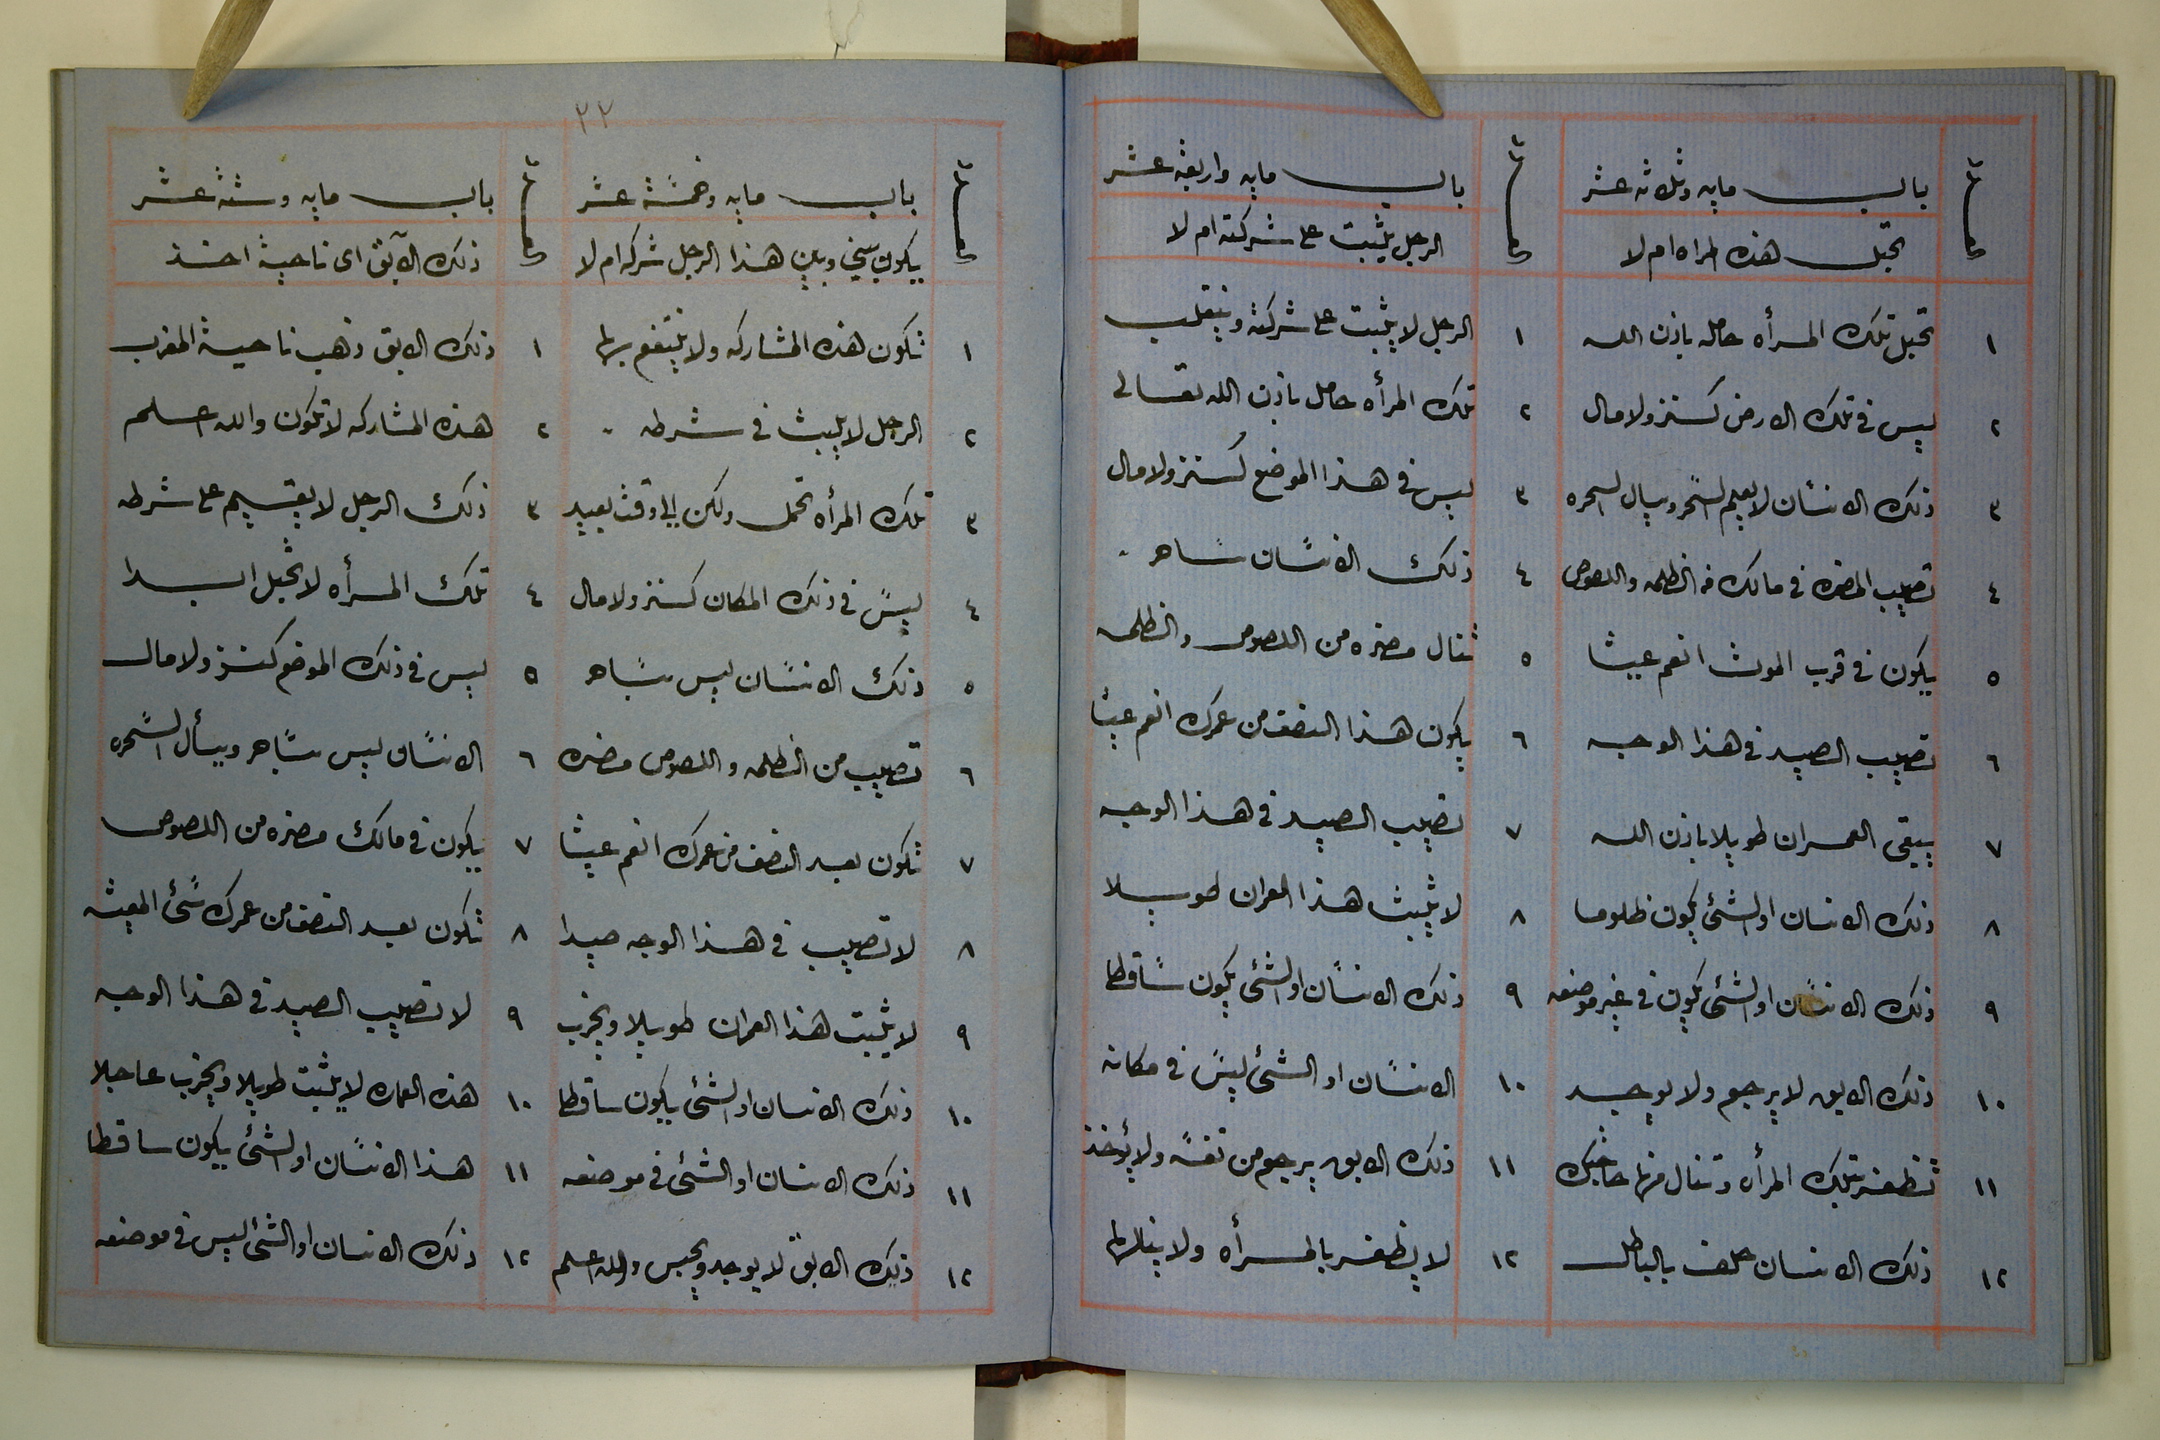 باب مايه وثلاثه عشر
تحبل هذه المراه ام لا
١ تحبل تلك المرأه حامله باذن الله
٢ ليس في تلك الارض كنز ولا مال
٣ ذلك الانسان لا يعلم السحر ويسال السحره
٤ تصيب المضره في مالك من الظلمه واللصوص
٥ يكون في قرب الموت انعم عيشا
٦ تصيب الصيد في هذا الوجه
٧ يبقى العمران طويلا باذن الله
٨ ذلك الانسان او الشئ يكون ظلوما
٩ ذلك الانسان او الشئ يكون في غير موضعه
١٠ ذلك الابق لا يرجع ولا يوجد
١١ تظفر بتلك المرأه وتنال منها حاجتك
١٢ ذلك الانسان حلف بالباطل
باب مايه واربعة عشر
الرجل يثبت على شركته ام لا
١ الرجل لا يثبت على شركته وينقلب
٢ تلك المرأه حامل باذن الله تعالى
٣ ليس في هذا الموضع كنز ولا مال
٤ ذلك الانسان ساحر
٥ تنال مضره من اللصوص والظلمه
٦ يكون هذا النصف من عمرك انعم عيشا
٧ تصيب الصيد في هذا الوجه
٨ لا يثبت هذا العمران طويلا
٩ ذلك الانسان او الشئ يكون ساقطا
١٠ الانسان او الشئ ليس في مكانه
١١ ذلك الابق يرجع من نفسه ولا يؤخذ
١٢ لا يظفر بالمرأه ولا ينالها
٢٢
باب مايه وخمسة عشر
يكون بيني وبين هذا الرجل شركه ام لا
١ تكون هذه المشاركه ولا ينتفع بها
٢ الرجل لا يلبث في شرطه
٣ تلك المرأه تحمل ولكن الى وقت بعيد
٤ ليس في ذلك المكان كنز ولا مال
٥ ذلك الانسان ليس ساحر
٦ تصيب من الظلمه واللصوص مضره
٧ تكون بعد النصف من عمرك انعم عيشا
٨ لا تصيب في هذا الوجه صيدا
٩ لا يثبت هذا العمران طويلا ويخرب
١٠ ذلك الانسان او الشئ يكون ساقطا
١١ ذلك الانسان او الشئ في موضعه
١٢ ذلك الابق لا يوجد ويحبس والله اعلم
باب مايه وستة عشر
ذلك الآبق اى ناحية اخذ
١ ذلك الابق ذهب ناحية المغرب
٢ هذه المشاركه لا تكون والله اعلم
٣ ذلك الرجل لا يقيم على شرطه
٤ تلك المرأه لا تحبل ابدا
٥ ليس في ذلك الموضع كنز ولا مال
٦ الانسان ليس ساحر ويسأل السحره
٧ يكون في مالك مضره من اللصوص
٨ تكون بعد النصف من عمرك سئ المعيشه
٩ لا تصيب الصيد في هذا الوجه
١٠ هذه العماره لا يثبت طويلا ويخرب عاجلا
١١ هذا الانسان او الشئ يكون ساقطا
١٢ ذلك الانسان او الشئ ليس في موضعه